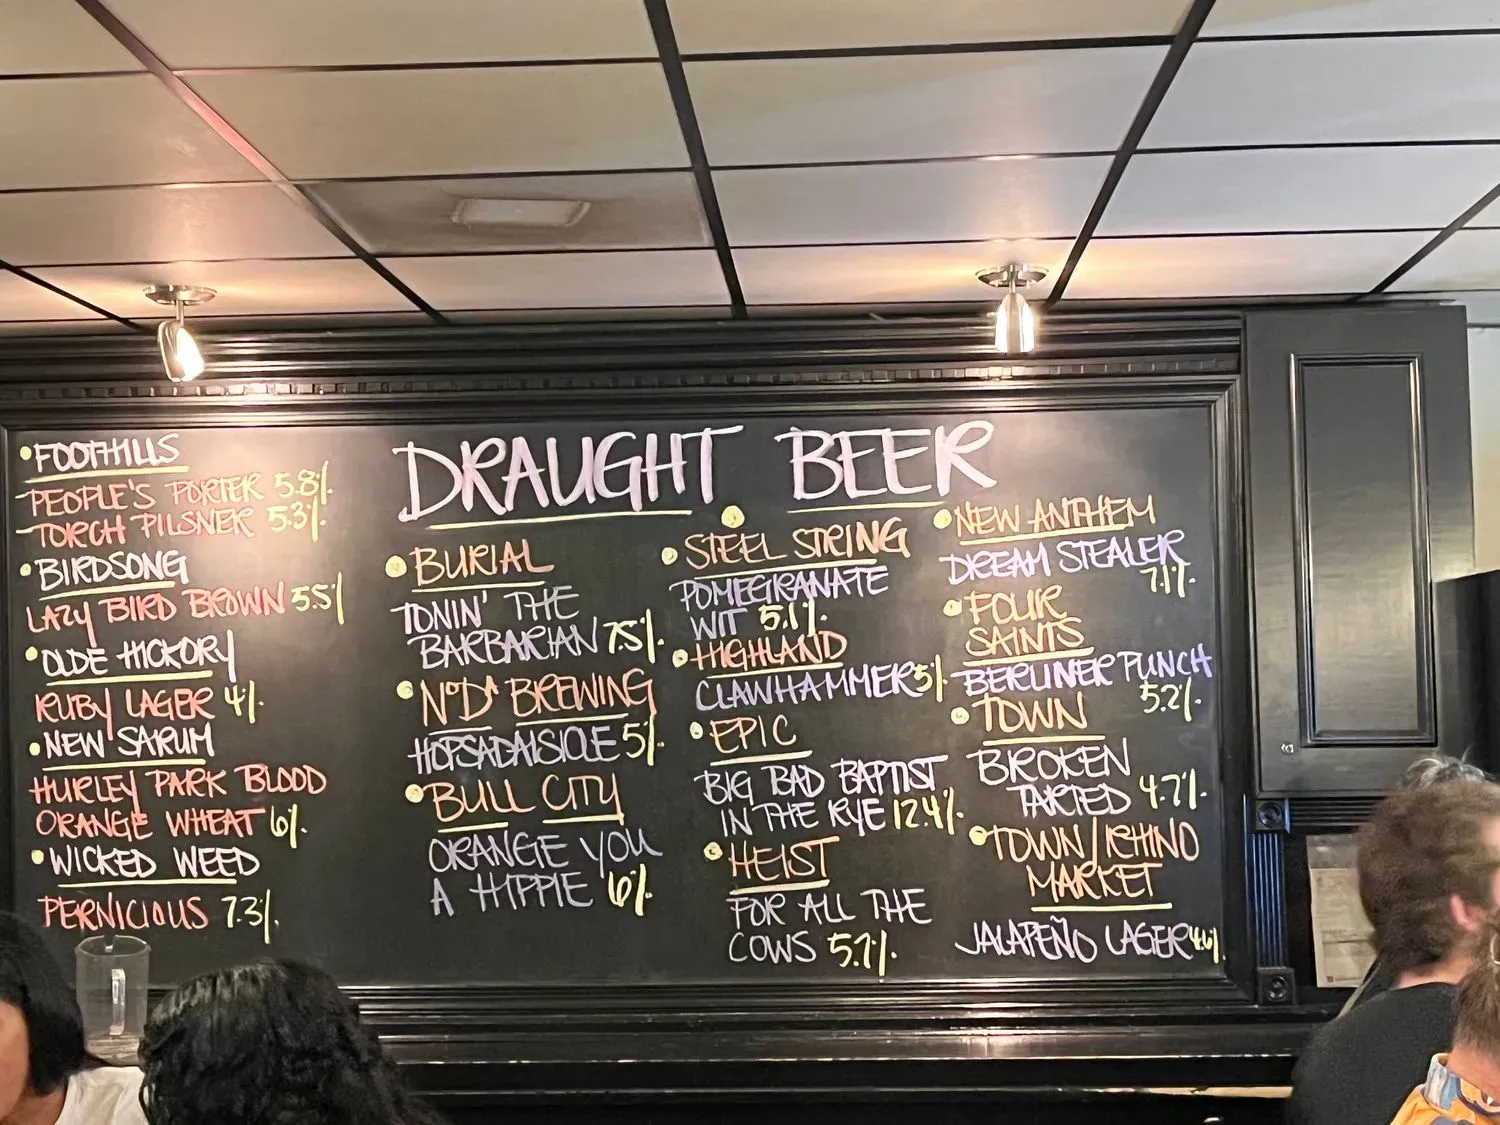 DRAUGHT BEER
• FOOTHILLS
PEOPLE'S PORTER 5.8%
TORCH PILSNER 5.3%
• BIRDSONG
LAZY BIRD BROWN 5.5%
• OLDE HICKORY
RUBY LAGER 4%
• NEW SARUM
HURLEY PARK BLOOD
ORANGE WHEAT 6%
• WICKED WEED
PERNICIOUS 7.3%
• BURIAL
TONIN' THE
BARBARIAN 7.5%
• NoDa BREWING
HOPSADAISICLE 5%
• BULL CITY
ORANGE YOU
A HIPPIE 6%
• STEEL STRING
POMEGRANATE
WIT 5.1%
• HIGHLAND
CLAWHAMMER 5%
• EPIC
BIG BAD BAPTIST
IN THE RYE 12.4%
• HEIST
FOR ALL THE
COWS 5.7%
• NEW ANTHEM
DREAM STEALER
7.1%
• FOUR
SAINTS
BERLINER PUNCH
5.2%
• TOWN
BROKEN
TARTED 4.7%
• TOWN/ICHINO
MARKET
JALAPEÑO LAGER 4.6%